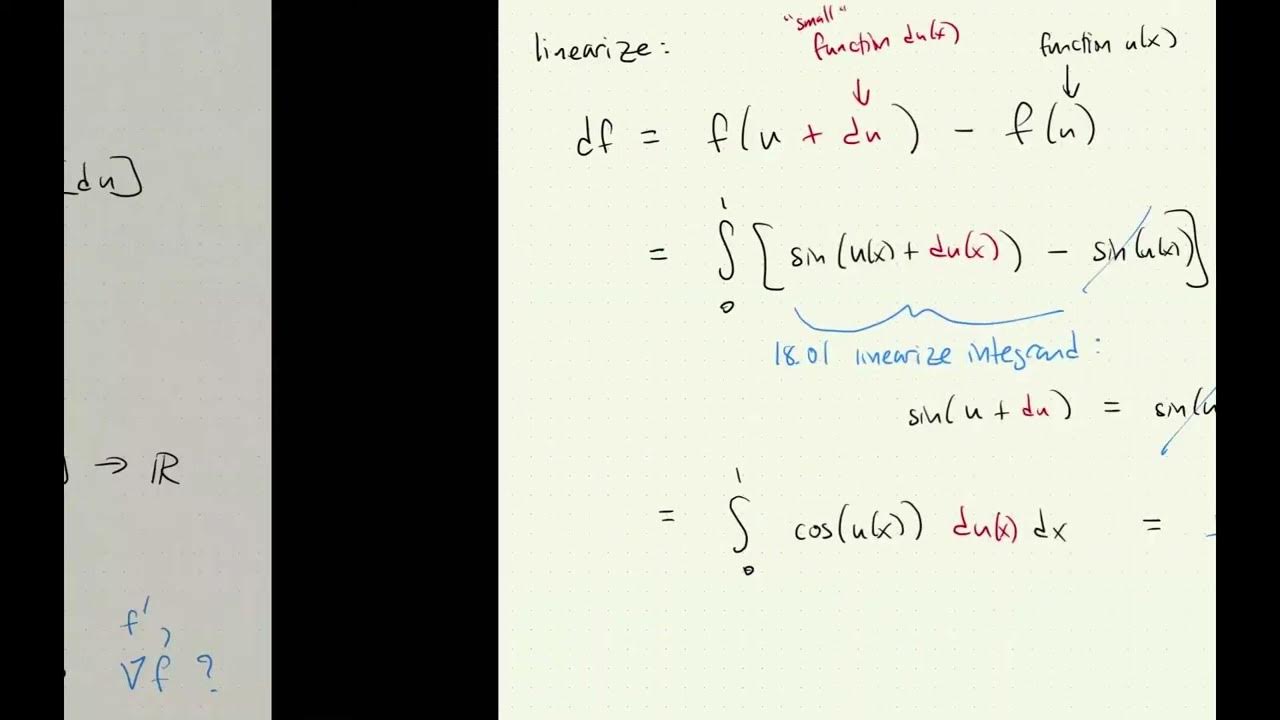 _du]
→ ℝ
f',
∇f ?
linearize:
"small"
function du(x)
function u(x)
↓ ↓
df = f(u + du) - f(u)
= ∫₀¹ [sin(u(x) + du(x)) - sin(u(x))]
18.01 linearize integrand:
sin(u + du) = sin(u
= ∫₀¹ cos(u(x)) du(x) dx =